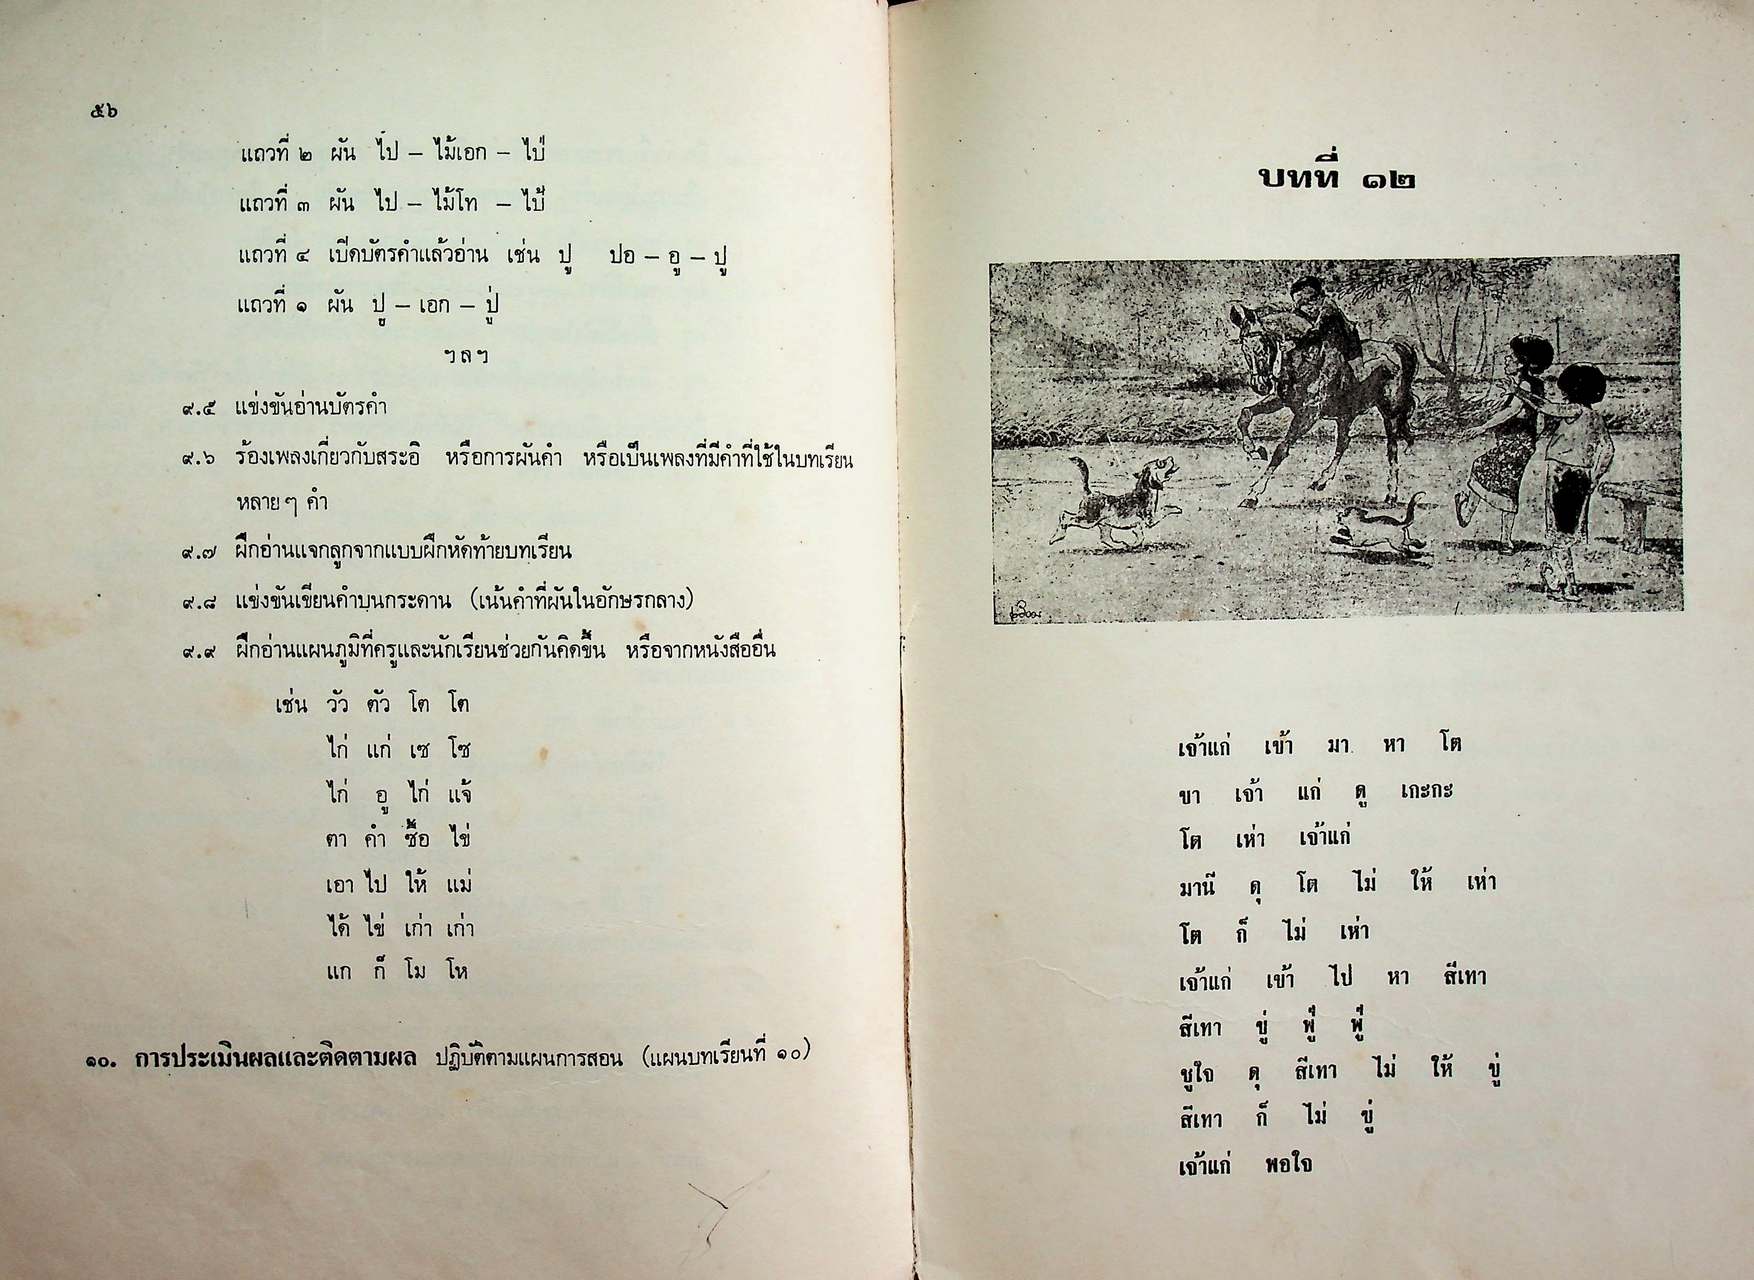 ๕๖
แถวที่ ๒ ผัน ไป – ไม้เอก – ไป่
แถวที่ ๓ ผัน ไป – ไม้โท – ไป้
แถวที่ ๔ เปิดบัตรคำแล้วอ่าน เช่น ปู ปอ – อู – ปู
แถวที่ ๑ ผัน ปู – เอก – ปู่
ฯลฯ
๙.๕ แข่งขันอ่านบัตรคำ
๙.๖ ร้องเพลงเกี่ยวกับสระอิ หรือการผันคำ หรือเป็นเพลงที่มีคำที่ใช้ในบทเรียน
หลายๆ คำ
๙.๗ ฝึกอ่านแจกลูกจากแบบฝึกหัดท้ายบทเรียน
๙.๘ แข่งขันเขียนคำบนกระดาน (เน้นคำที่ผันในอักษรกลาง)
๙.๙ ฝึกอ่านแผนภูมิที่ครูและนักเรียนช่วยกันคิดขึ้น หรือจากหนังสืออื่น
เช่น วัว ตัว โต โต
ไก่ แก่ เซ โซ
ไก่ อู ไก่ แจ้
ตา คำ ซื้อ ไข่
เอา ไป ให้ แม่
ได้ ไข่ เก่า เก่า
แก ก็ โม โห
๑๐. การประเมินผลและติดตามผล ปฏิบัติตามแผนการสอน (แผนบทเรียนที่ ๑๐)
บทที่ ๑๒
เจ้าแก่ เข้า มา หา โต
ขา เจ้า แก่ ดู เกะกะ
โต เห่า เจ้าแก่
มานี ดุ โต ไม่ ให้ เห่า
โต ก็ ไม่ เห่า
เจ้าแก่ เข้า ไป หา สีเทา
สีเทา ขู่ ฟู่ ฟู่
ชูใจ ดุ สีเทา ไม่ ให้ ขู่
สีเทา ก็ ไม่ ขู่
เจ้าแก่ พอใจ